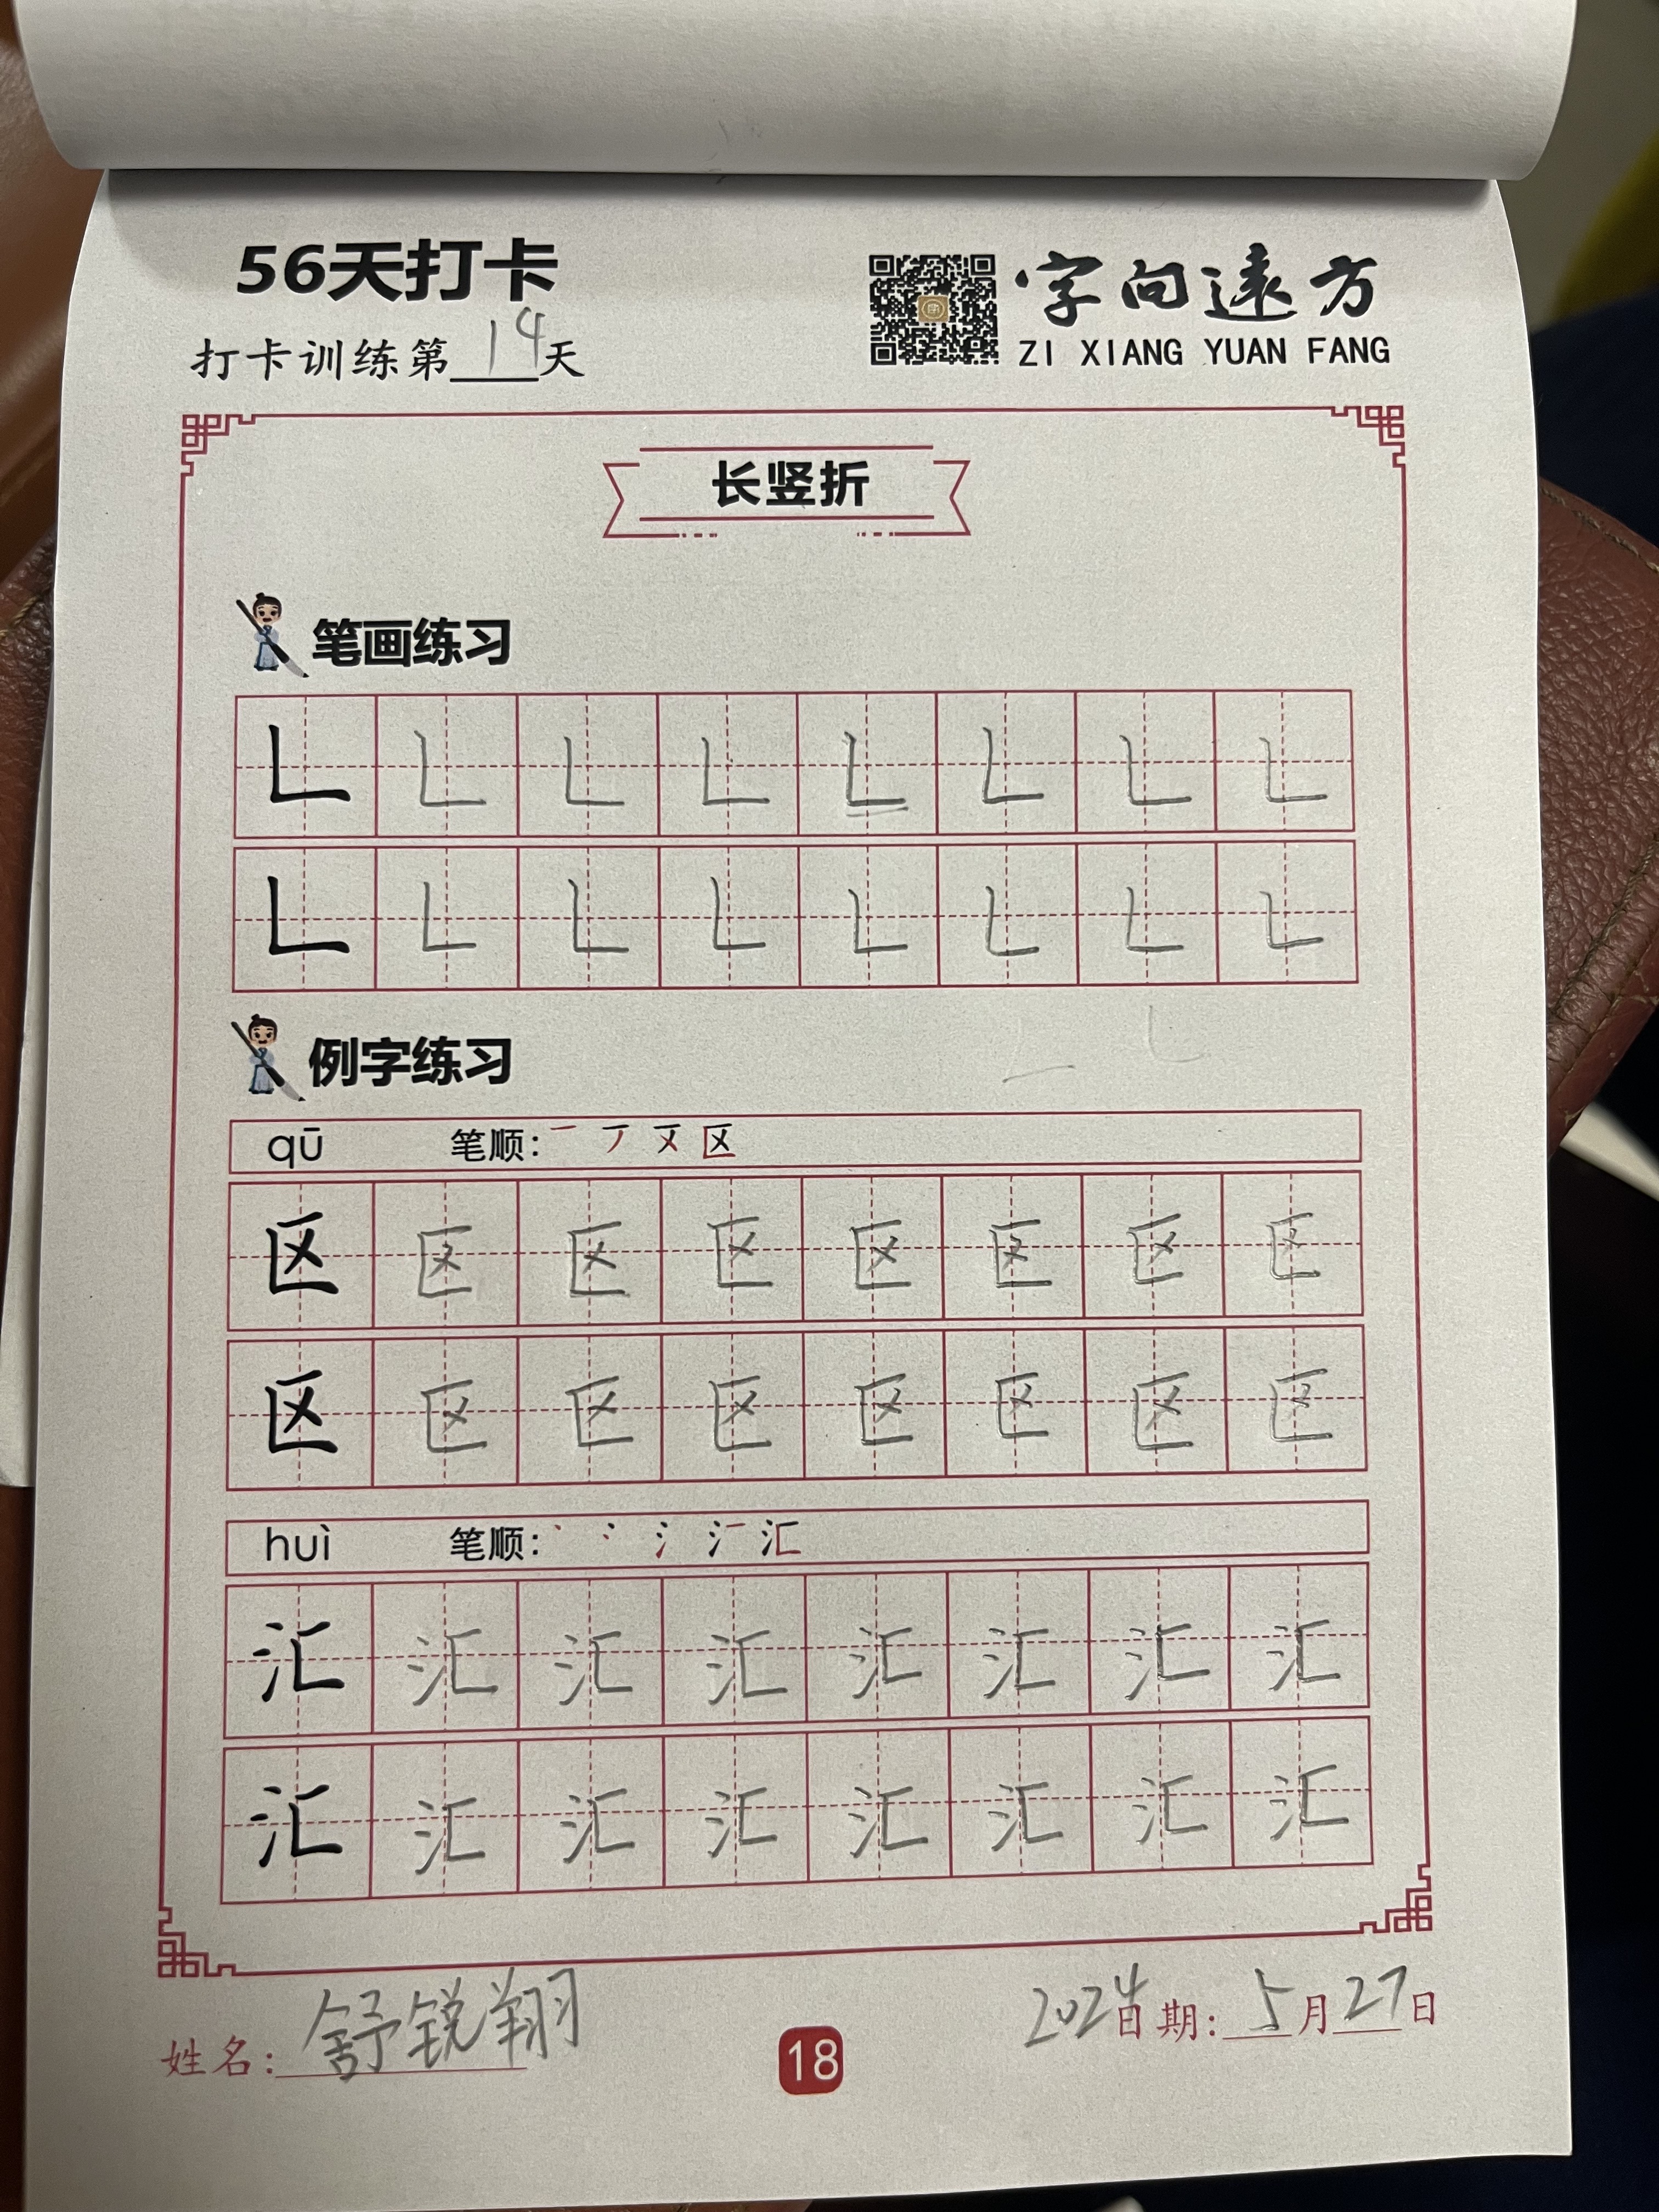 56天打卡
字向遠方
打卡训练第14天
ZI XIANG YUAN FANG
长竖折
笔画练习
𠃊 𠃊 𠃊 𠃊 𠃊 𠃊 𠃊 𠃊
𠃊 𠃊 𠃊 𠃊 𠃊 𠃊 𠃊 𠃊
例字练习
qū 笔顺: 区
区 区 区 区 区 区 区 区
区 区 区 区 区 区 区 区
huì 笔顺: 汇
汇 汇 汇 汇 汇 汇 汇 汇
汇 汇 汇 汇 汇 汇 汇 汇
姓名: 舒锐翔
18
2024日期: 5月27日